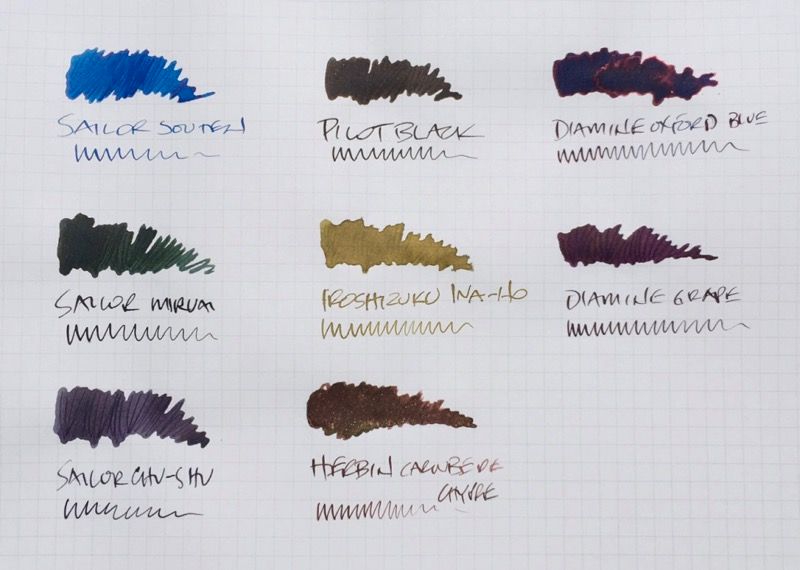 SAILOR SOUTEN
PILOT BLACK
DIAMINE OXFORD BLUE
SAILOR MIRUAI
IROSHIZUKU INA-HO
DIAMINE GRAPE
SAILOR CHU-SHU
HERBIN CARUBE DE
CHYPRE